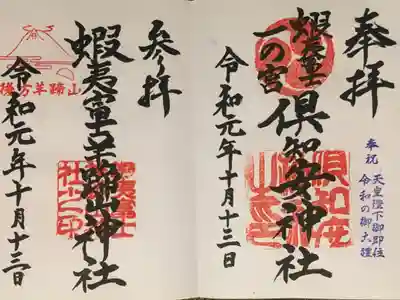 奉拝
奉祝 天皇陛下御即位
令和の御大禮
蝦夷富士
一の宮
倶知安神社
令和元年十月十三日
参拝
蝦夷富士羊蹄山神社
山蹄羊方後
令和元年十月十三日